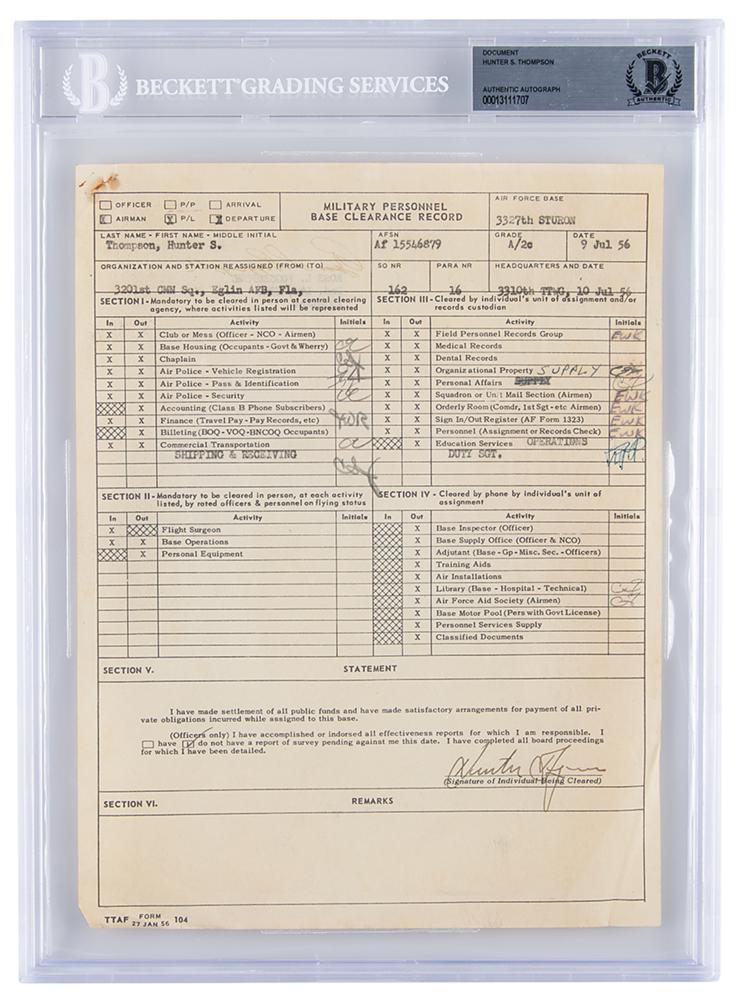 BECKETT GRADING SERVICES
DOCUMENT
HUNTER S. THOMPSON
AUTHENTIC AUTOGRAPH
00013111707
BECKETT
AUTHENTIC
OFFICER P/P ARRIVAL
X AIRMAN X P/L X DEPARTURE
MILITARY PERSONNEL
BASE CLEARANCE RECORD
AIR FORCE BASE
3327th STURON
LAST NAME - FIRST NAME - MIDDLE INITIAL
Thompson, Hunter S.
AFSN
Af 15546879
GRADE
A/2c
DATE
9 Jul 56
ORGANIZATION AND STATION REASSIGNED (FROM) (TO)
3201st CMN Sq., Eglin AFB, Fla,
SO NR
162
PARA NR
16
HEADQUARTERS AND DATE
3310th TTWG, 10 Jul 56
SECTION I - Mandatory to be cleared in person at central clearing
agency, where activities listed will be represented
In Out Activity Initials
X X Club or Mess (Officer - NCO - Airmen)
X X Base Housing (Occupants - Govt & Wherry)
X X Chaplain
X X Air Police - Vehicle Registration
X X Air Police - Pass & Identification
X X Air Police - Security
X Accounting (Class B Phone Subscribers)
X X Finance (Travel Pay - Pay Records, etc)
X Billeting (BOQ - VOQ - BNCOQ Occupants)
X X Commercial Transportation
SHIPPING & RECEIVING
SECTION III - Cleared by individual's unit of assignment and/or
records custodian
In Out Activity Initials
X X Field Personnel Records Group EWK
X X Medical Records
X X Dental Records
X X Organizational Property SUPPLY
X X Personal Affairs SUPPLY
X X Squadron or Unit Mail Section (Airmen) EWK
X X Orderly Room (Comdr, 1st Sgt - etc Airmen) EWK
X X Sign In/Out Register (AF Form 1323) EWK
X X Personnel (Assignment or Records Check) EWK
X Education Services OPERATIONS
DUTY SGT.
SECTION II - Mandatory to be cleared in person, at each activity
listed, by rated officers & personnel on flying status
In Out Activity Initials
X Flight Surgeon
X X Base Operations
X Personal Equipment
SECTION IV - Cleared by phone by individual's unit of
assignment
In Out Activity Initials
X Base Inspector (Officer)
X Base Supply Office (Officer & NCO)
X Adjutant (Base - Gp - Misc. Sec. - Officers)
X Training Aids
X Air Installations
X Library (Base - Hospital - Technical)
X Air Force Aid Society (Airmen)
X Base Motor Pool (Pers with Govt License)
X Personnel Services Supply
X Classified Documents
SECTION V. STATEMENT
I have made settlement of all public funds and have made satisfactory arrangements for payment of all pri-
vate obligations incurred while assigned to this base.
(Officers only) I have accomplished or indorsed all effectiveness reports for which I am responsible. I
have do not have a report of survey pending against me this date. I have completed all board proceedings
for which I have been detailed.
(Signature of Individual Being Cleared)
SECTION VI. REMARKS
TTAF FORM 104
27 JAN 56